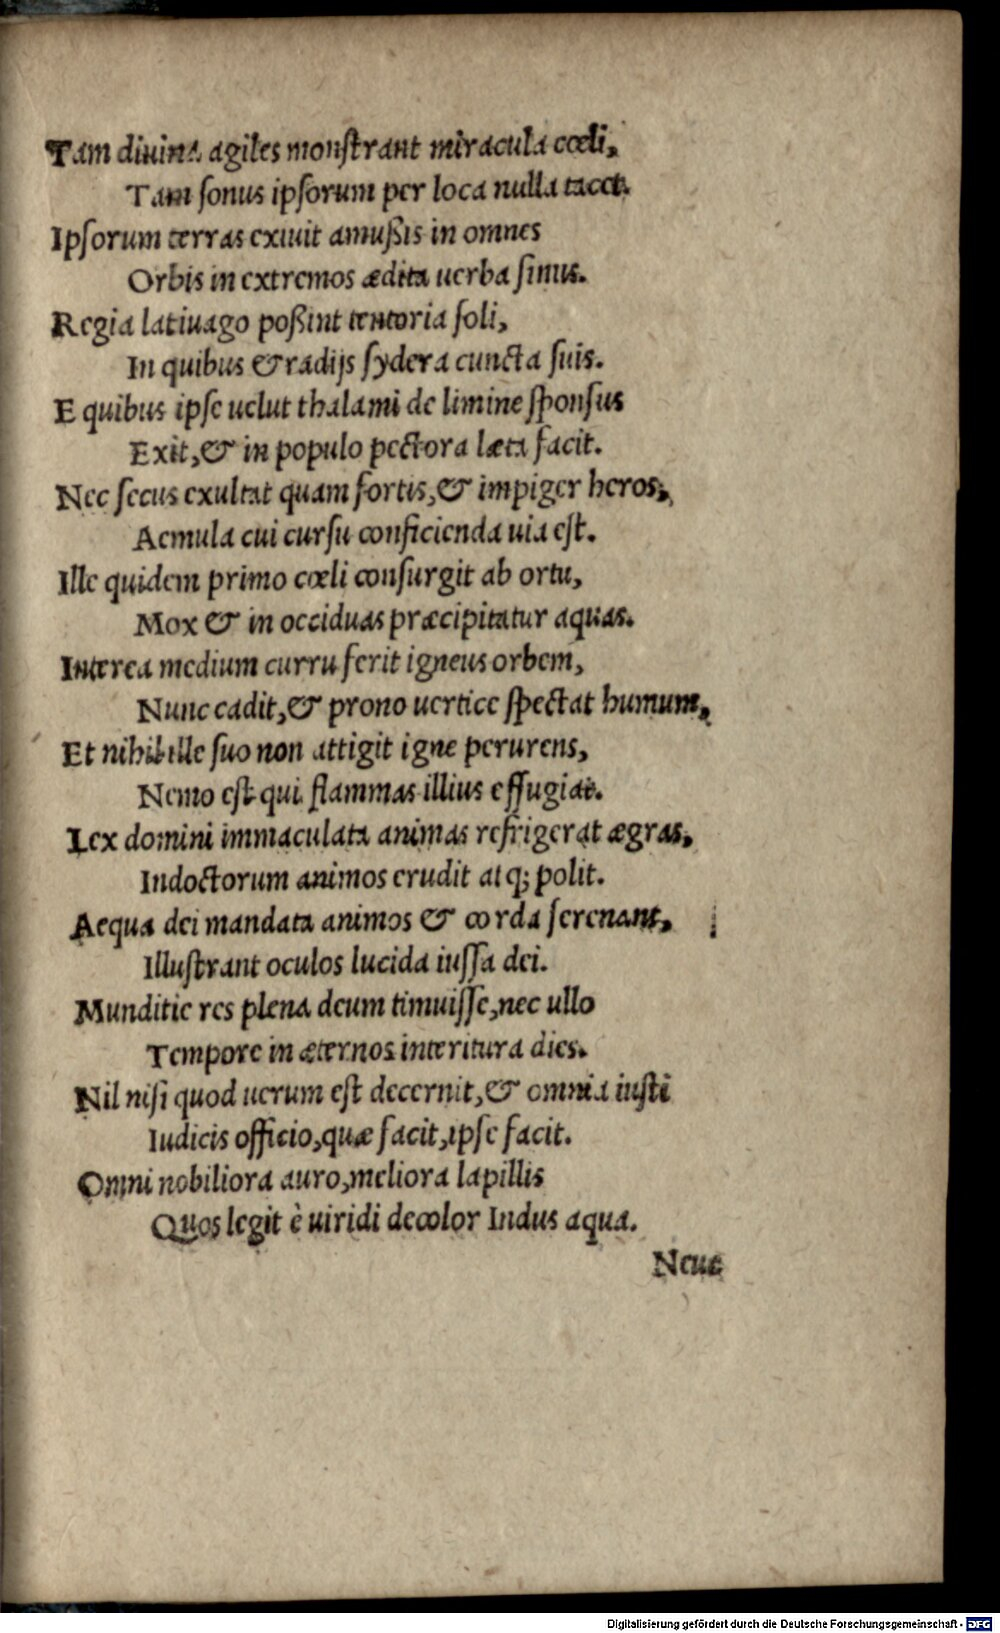 Tam diuina agiles monſtrant miracula cœli,
Tam ſonus ipſorum per loca nulla tacet.
Ipſorum terras exiuit amußis in omnes
Orbis in extremos ædita uerba ſinus.
Regia latiuago poßint tentoria ſoli,
In quibus & radijs ſydera cuncta ſuis.
E quibus ipſe uelut thalami de limine ſponſus
Exit, & in populo pectora læta facit.
Nec ſecus exultat quam fortis, & impiger heros,
Aemula cui curſu conficienda uia eſt.
Ille quidem primo cœli conſurgit ab ortu,
Mox & in occiduas præcipitatur aquas.
Interea medium curru ferit igneus orbem,
Nunc cadit, & prono uertice ſpectat humum,
Et nihil ille ſuo non attigit igne perurens,
Nemo eſt qui flammas illius effugiat.
Lex domini immaculata animas refrigerat ægras,
Indoctorum animos erudit atq; polit.
Aequa dei mandata animos & corda ſerenant,
Illuſtrant oculos lucida iuſſa dei.
Munditie res plena deum timuiſſe, nec ullo
Tempore in æternos interitura dies.
Nil niſi quod uerum eſt decernit, & omnia iuſti
Iudicis officio, quæ facit, ipſe facit.
Omni nobiliora auro, meliora lapillis
Quos legit è uiridi decolor Indus aqua.
Neue
Digitalisierung gefördert durch die Deutsche Forschungsgemeinschaft - DFG